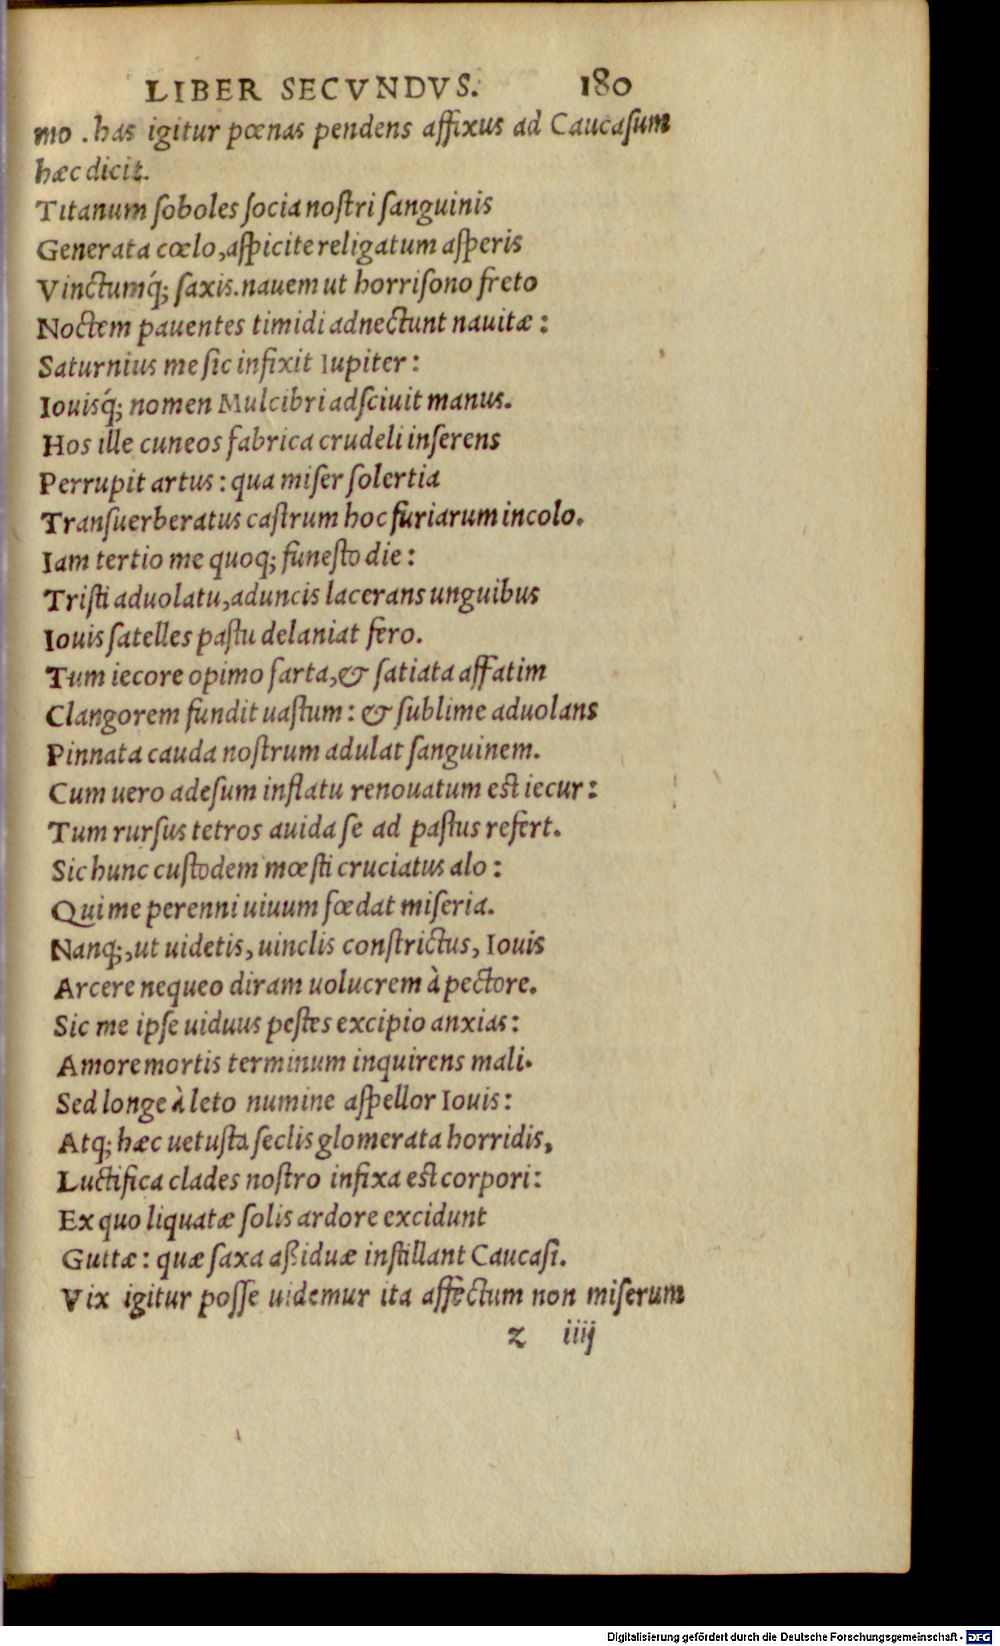 LIBER SECVNDVS. 180
mo . has igitur pœnas pendens affixus ad Caucasum
hæc dicit.
Titanum soboles socia nostri sanguinis
Generata cœlo, aspicite religatum asperis
Vinctumq́; saxis. nauem ut horrisono freto
Noctem pauentes timidi adnectunt nauitæ :
Saturnius me sic infixit Iupiter :
Iouisq́; nomen Mulcibri adsciuit manus.
Hos ille cuneos fabrica crudeli inserens
Perrupit artus : qua miser solertia
Transuerberatus castrum hoc furiarum incolo.
Iam tertio me quoq; funesto die :
Tristi aduolatu, aduncis lacerans unguibus
Iouis satelles pastu delaniat fero.
Tum iecore opimo farta, & satiata affatim
Clangorem fundit uastum : & sublime aduolans
Pinnata cauda nostrum adulat sanguinem.
Cum uero adesum inflatu renouatum est iecur :
Tum rursus tetros auida se ad pastus refert.
Sic hunc custodem mœsti cruciatus alo :
Qui me perenni uiuum fœdat miseria.
Nanq;, ut uidetis, uinclis constrictus, Iouis
Arcere nequeo diram uolucrem à pectore.
Sic me ipse uiduus pestes excipio anxias :
Amore mortis terminum inquirens mali.
Sed longe à leto numine aspellor Iouis :
Atq; hæc uetusta seclis glomerata horridis,
Luctifica clades nostro infixa est corpori :
Ex quo liquatæ solis ardore excidunt
Guttæ : quæ saxa aßiduæ instillant Caucasi.
Vix igitur posse uidemur ita affectum non miserum
z iiij
Digitalisierung gefördert durch die Deutsche Forschungsgemeinschaft - DFG